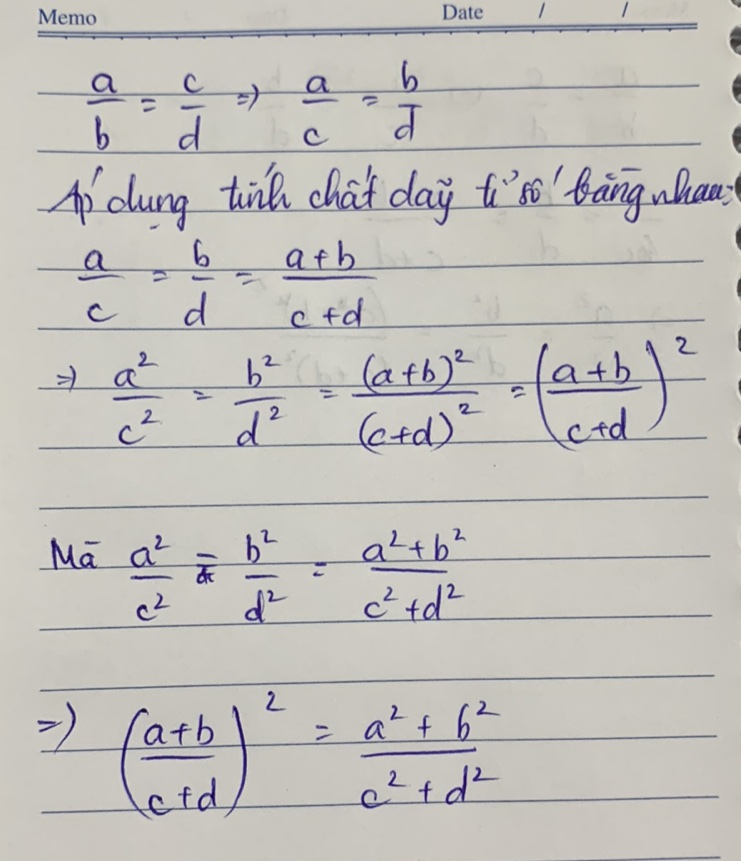 Memo Date / /
a/b = c/d => a/c = b/d
Áp dụng tính chất dãy tỉ số bằng nhau:
a/c = b/d = (a+b)/(c+d)
=> a²/c² = b²/d² = (a+b)²/(c+d)² = ((a+b)/(c+d))²
Mà a²/c² = b²/d² = (a²+b²)/(c²+d²)
=> ((a+b)/(c+d))² = (a²+b²)/(c²+d²)